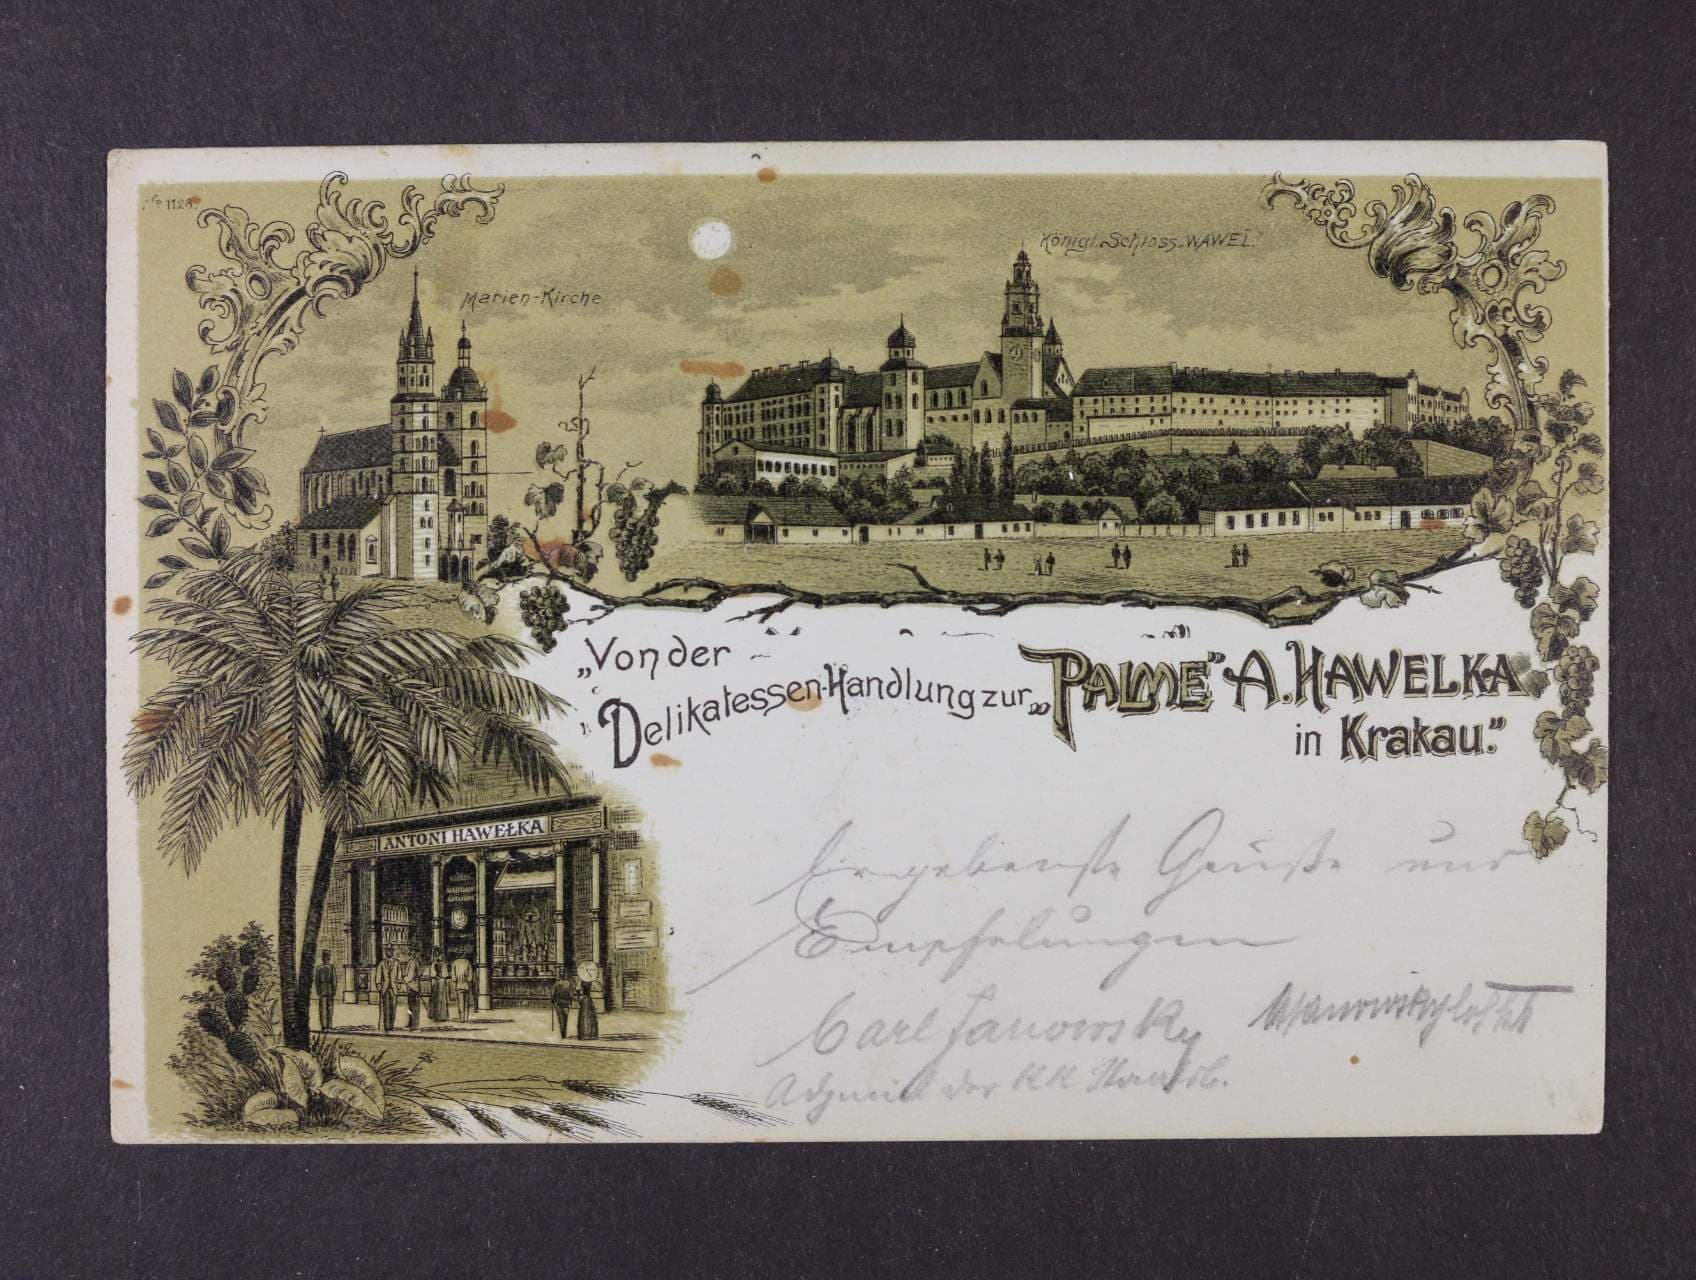 No 1128.
Marien-Kirche
Königl. Schloss „WAWEL"
„Von der
Delikatessen-Handlung zur „PALME" A. HAWELKA
in Krakau."
ANTONI HAWEŁKA
Ergebenste Grüße und
Empfelungen
Carl Janowsky
der KK